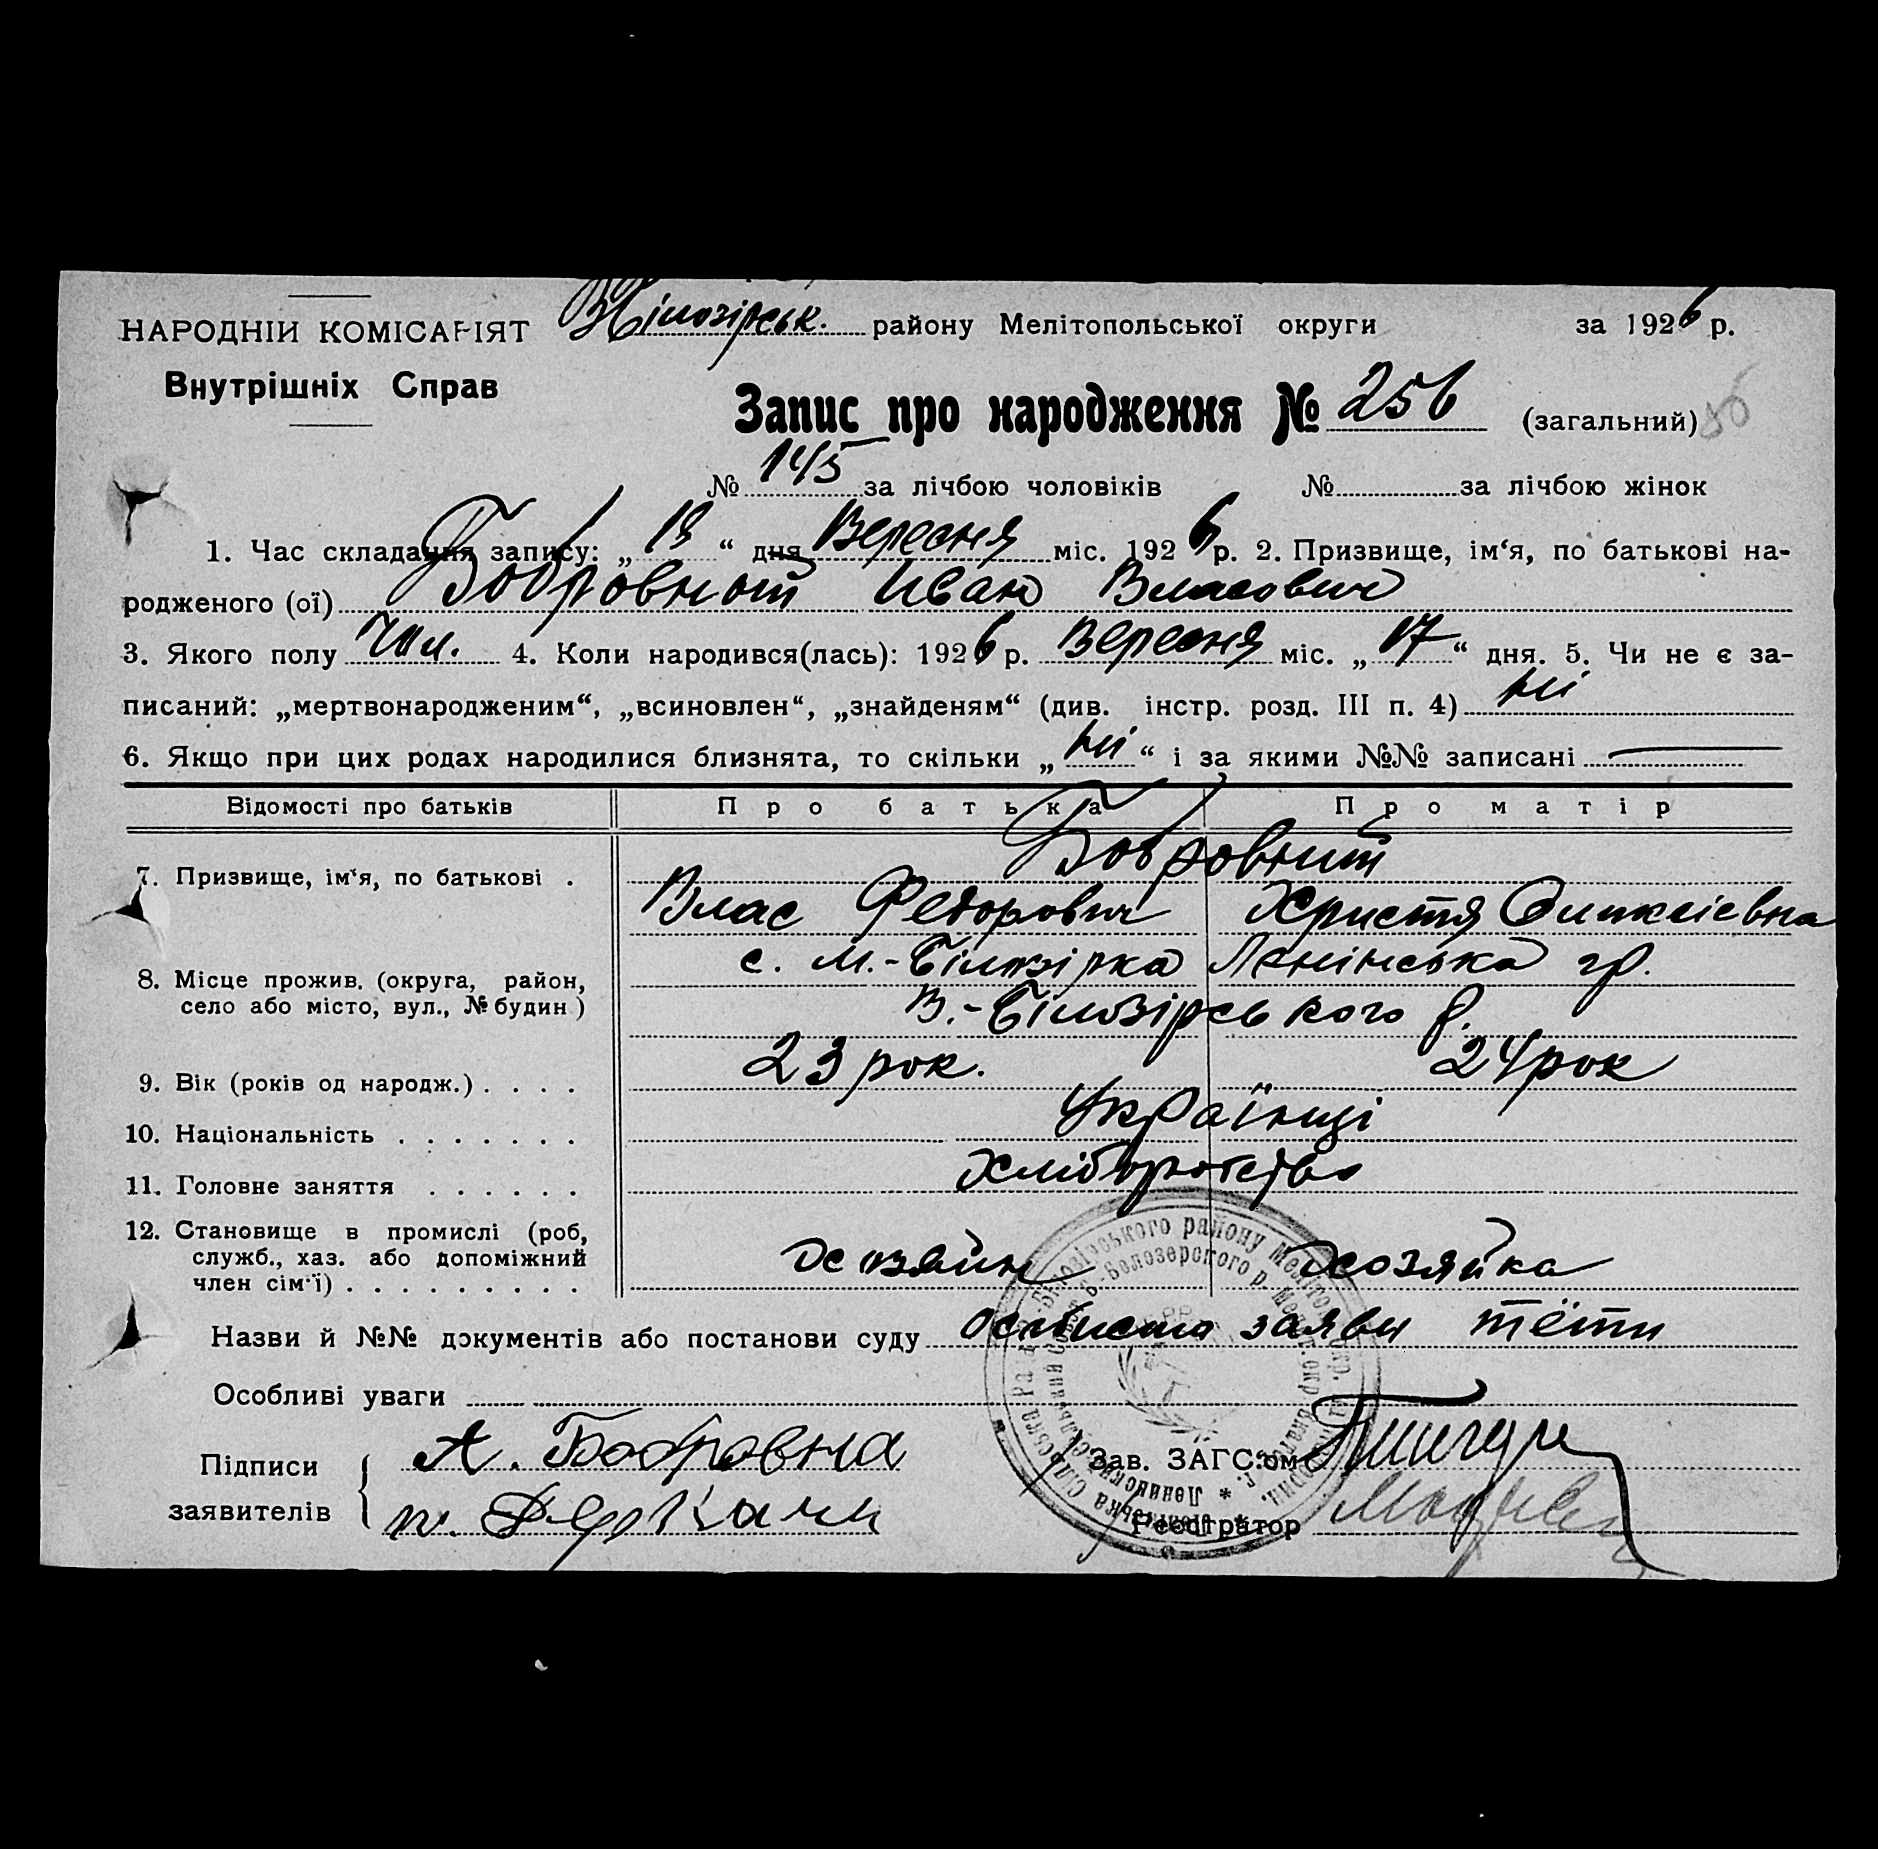 НАРОДНІЙ КОМІСАРІЯТ
Внутрішніх Справ
Білозірськ. району Мелітопольської округи за 1926 р.
Запис про народження № 256 (загальний) 56
№ 145 за лічбою чоловіків № за лічбою жінок
1. Час складання запису: „18“ дня Вересня міс. 1926 р. 2. Призвище, ім‘я, по батькові на-
родженого (ої) Бобровнит Иван Власович
3. Якого полу Чол. 4. Коли народився(лась): 1926 р. Вересня міс. „17“ дня. 5. Чи не є за-
писаний: „мертвонародженим“, „всиновлен“, „знайденям“ (див. інстр. розд. III п. 4) ні
6. Якщо при цих родах народилися близнята, то скільки „ні“ і за якими №№ записані
Відомості про батьків Про батька Про матір
7. Призвище, ім‘я, по батькові . Бобровнит
Влас Федорович Христя
8. Місце прожив. (округа, район, село або місто, вул., № будин) с. М.-Білозірка Ленінська гр.
В.-Білозірського р.
9. Вік (років од народж.) . . . . 23 рок. 24 рок
10. Національність . . . . . . . Українці
11. Головне заняття . . . . . . Хліборобство
12. Становище в промислі (роб,
служб., хаз. або допоміжний
член сім‘ї) . . . . . . . . . Хозяйн Хозяйка
Назви й №№ документів або постанови суду особисто заяви тёти
Особливі уваги
Підписи заявителів А. Бобровна
т. Деркачи
Зав. ЗАГС‘ом
Реєстратор